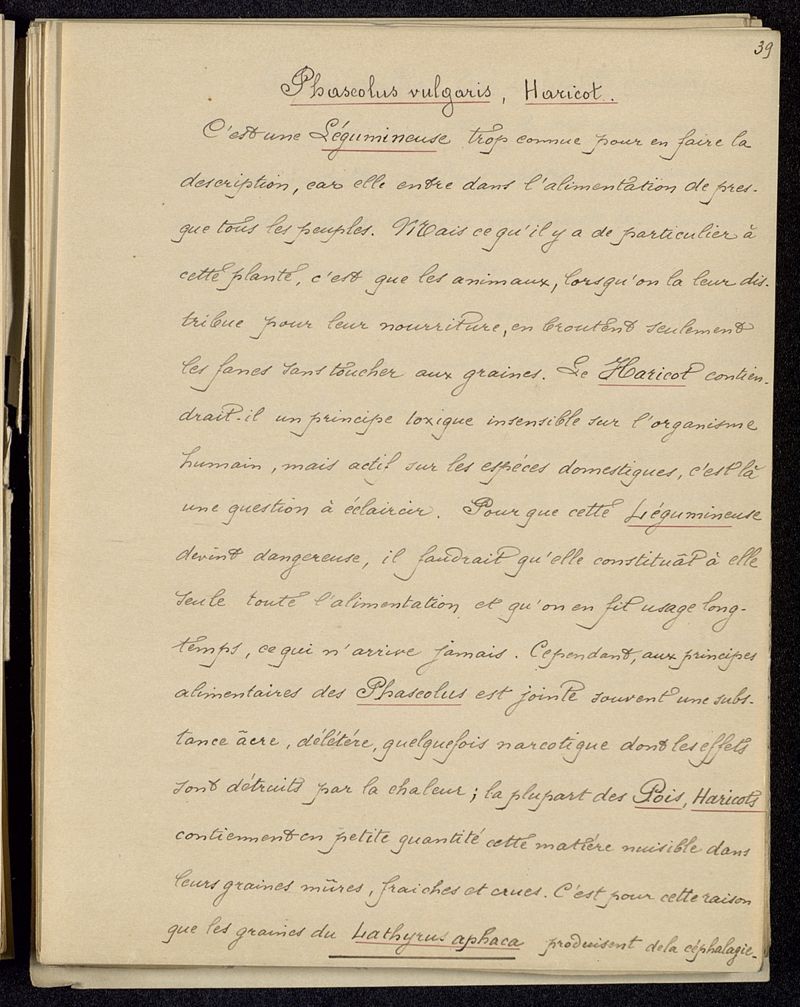 39
Phaseolus vulgaris, Haricot.
C'est une Légumineuse trop connue pour en faire la
description, car elle entre dans l'alimentation de pres-
que tous les peuples. Mais ce qu'il y a de particulier à
cette plante, c'est que les animaux, lorsqu'on la leur dis-
tribue pour leur nourriture, en broutent seulement
les fanes sans toucher aux graines. Le Haricot contien-
drait-il un principe toxique insensible sur l'organisme
humain, mais actif sur les espéces domestiques, c'est là
une question à éclaircir. Pour que cette Légumineuse
devint dangereuse, il faudrait qu'elle constituât à elle
seule toute l'alimentation et qu'on en fit usage long-
temps, ce qui n'arrive jamais. Cependant, aux principes
alimentaires des Phaseolus est jointe souvent une subs-
tance âcre, délétére, quelquefois narcotique dont les effets
sont détruits par la chaleur; la plupart des Pois, Haricots
contiennent en petite quantité cette matiére nuisible dans
leurs graines mûres, fraiches et crues. C'est pour cette raison
que les graines du Lathyrus aphaca produisent de la céphalagie.